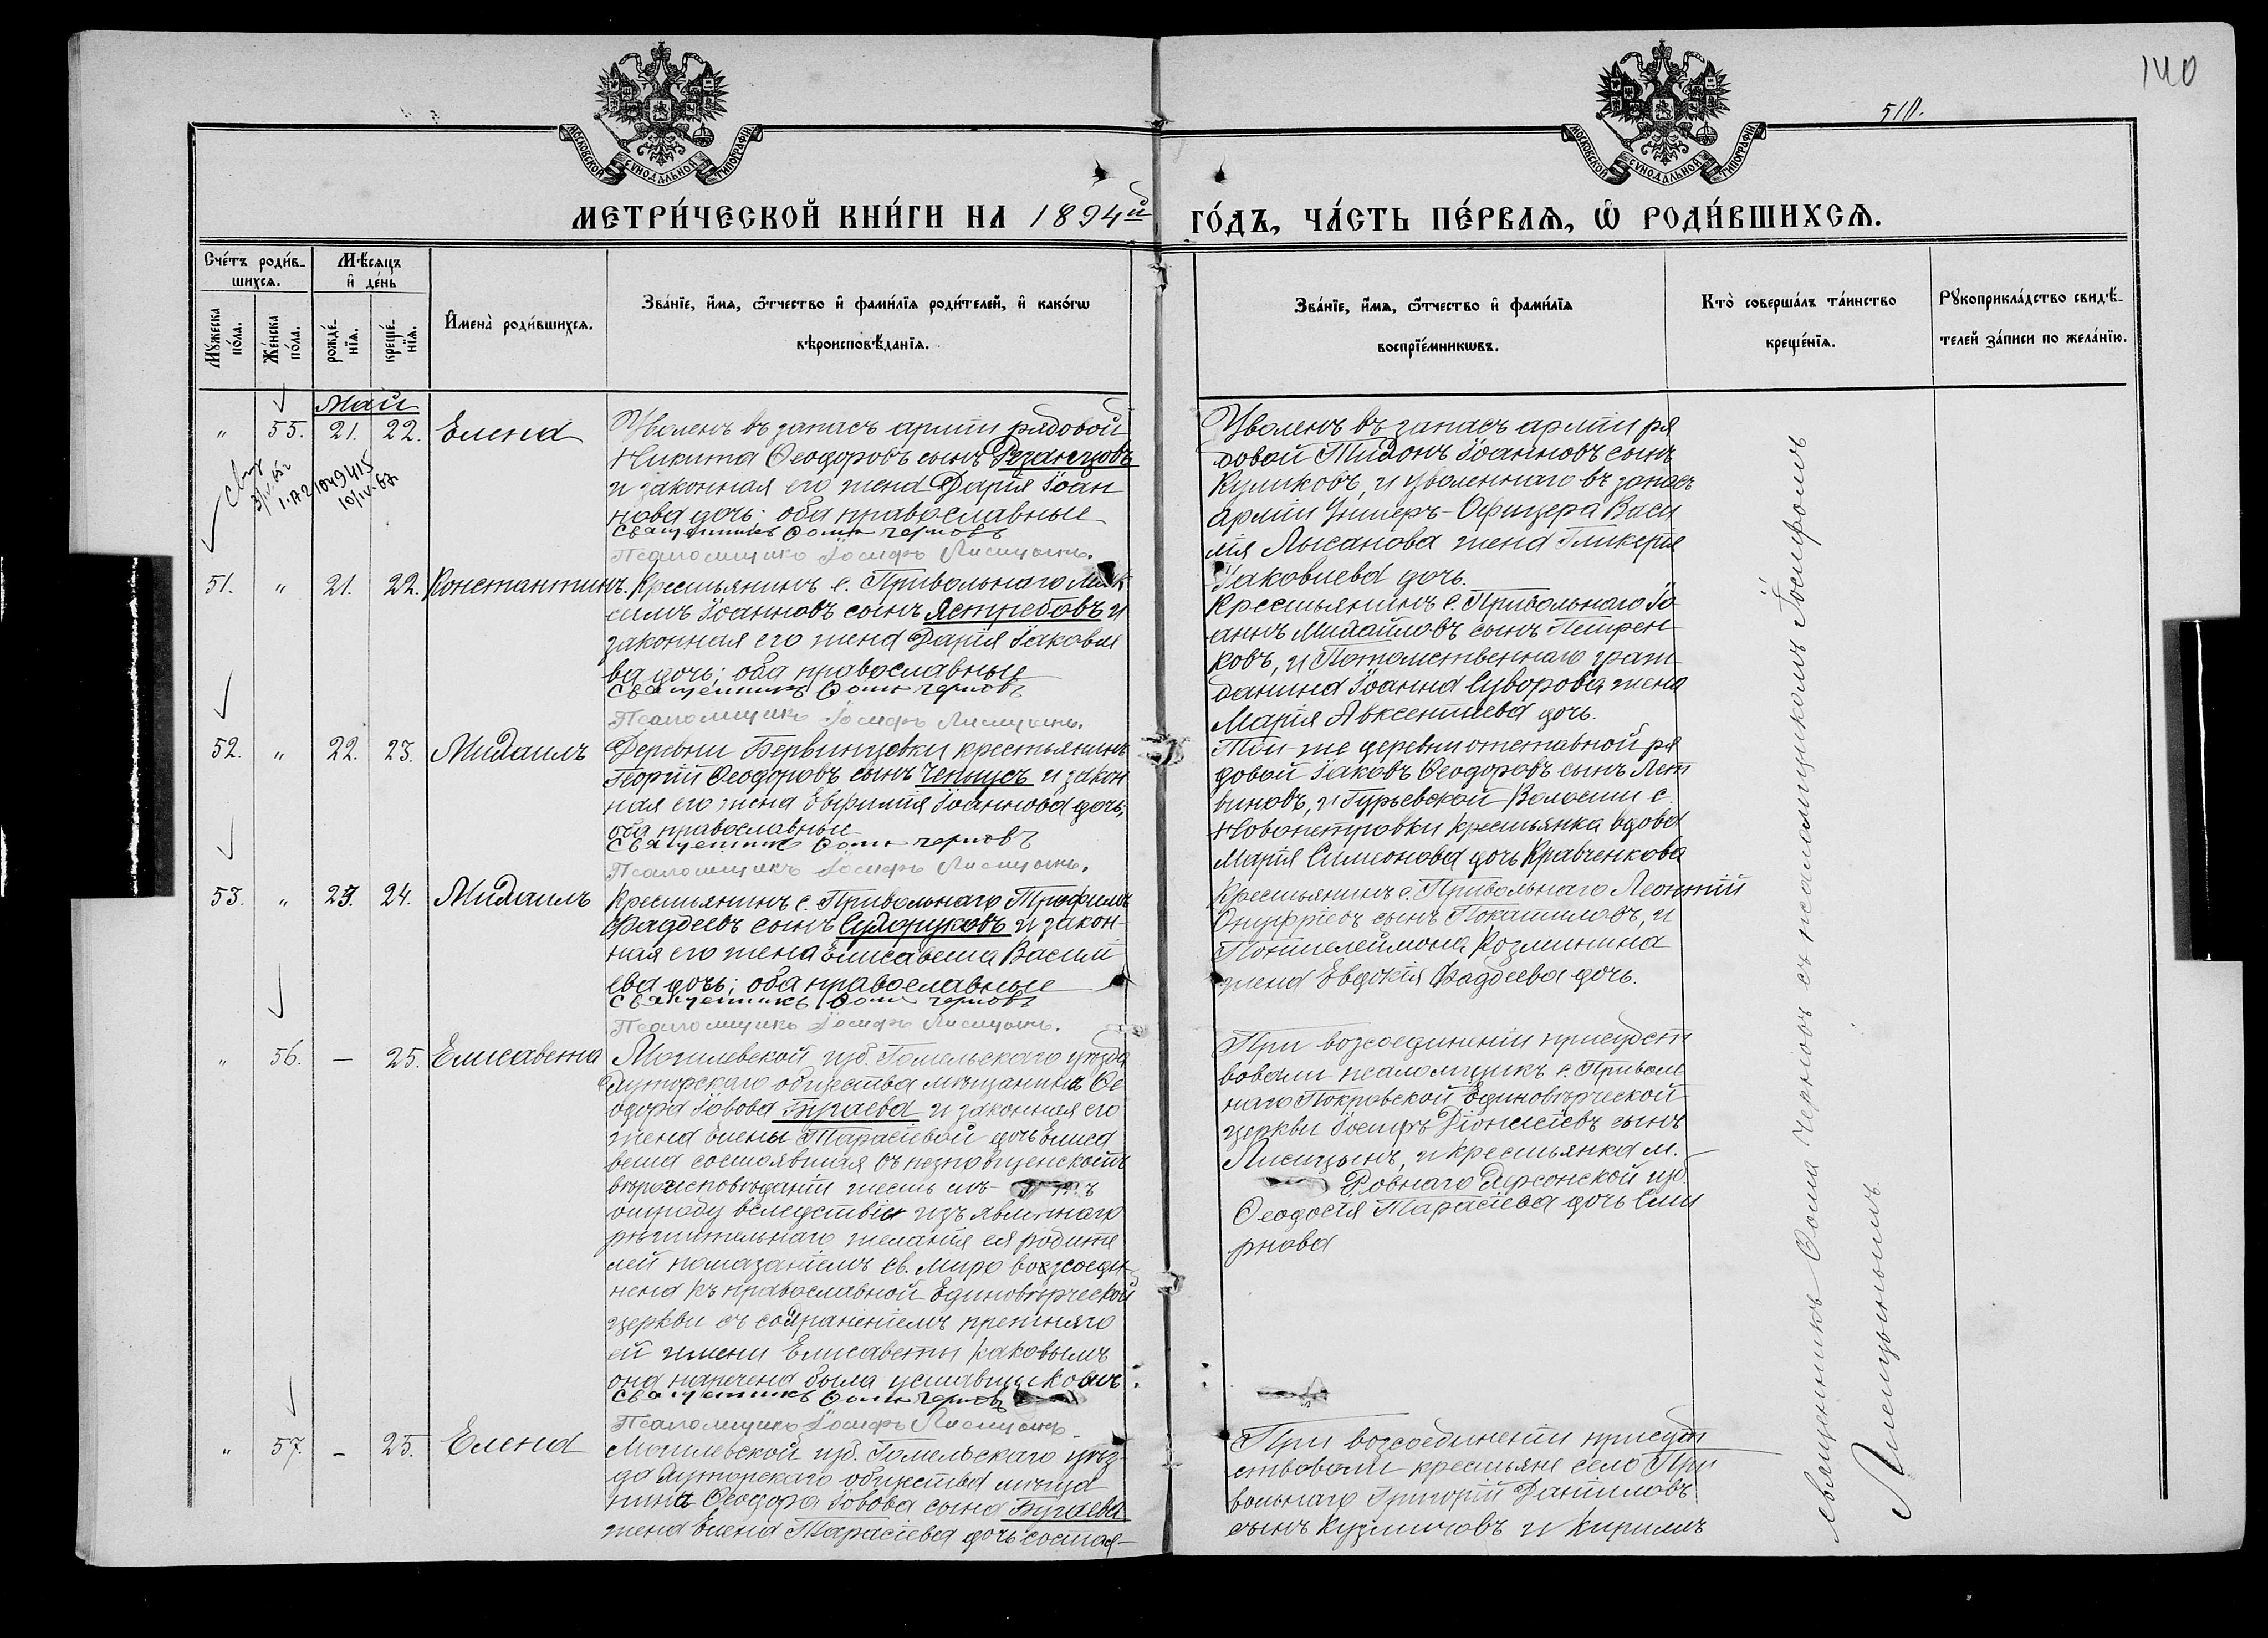 140
510.
МОСКОВСКОЙ СѴНОДАЛЬНОЙ ТИПОГРАФІИ
МОСКОВСКОЙ СѴНОДАЛЬНОЙ ТИПОГРАФІИ
МЕТРИ́ЧЕСКОЙ КНИ́ГИ НА 1894й ГО́ДЪ, ЧА́СТЬ ПЕ́РВАѦ, Ѡ҆ РОДИ́ВШИХСѦ.
Сче́тъ роди́в-
шихсѧ.
Мѣ́сѧцъ
и҆ де́нь
Мꙋ́жеска
по́ла.
Же́нска
по́ла.
рожде́-
нїѧ.
креще́-
нїѧ.
И҆мена̀ роди́вшихсѧ.
Зва́нїе, и҆́мѧ, ѻ҆́тчество и҆ фами́лїѧ роди́телей, и҆ како́гѡ
вѣроисповѣ́данїѧ.
Зва́нїе, и҆́мѧ, ѻ҆́тчество и҆ фами́лїѧ
воспрїе́мникѡвъ.
Кто̀ соверша́лъ та́инство
креще́нїѧ.
Рꙋкоприкла́дство свидѣ́-
телей за́писи по жела́нїю.
Май
" 55. 21. 22. Елена
Уволенъ въ запасъ арміи рядовой
Никита Ѳеодоровъ сынъ Резанцовъ
и законная его жена Дарія Іоан
нова дочь; оба православные
Священникъ Ѳома Черновъ
Псаломщикъ Іосифъ Лисицынъ.
Уволенъ въ запасъ арміи ря
довой Тихонъ Іоанновъ сынъ
Куликовъ, и уволеннаго въ запасъ
арміи Унтеръ-Офицера Васи
лія Лысанова жена Гликерія
Іаковлева дочь.
51. " 21. 22. Константинъ.
Крестьянинъ с. Привольнаго Мак
симъ Іоанновъ сынъ Ястребовъ и
законная его жена Дарія Іаковле
ва дочь; оба православные
Священникъ Ѳома Черновъ
Псаломщикъ Іосифъ Лисицынъ.
Крестьянинъ с. Привольнаго Іо
аннъ Михайловъ сынъ Петрен
ковъ, и Потомственнаго граж
данина Іоанна Суворова жена
Марія Авксентіева дочь.
52. " 22. 23. Михаилъ
Деревни Бервинцовки крестьянинъ
Георгій Ѳеодоровъ сынъ Чепцусъ и закон
ная его жена Евфимія Іоаннова дочь;
оба православные
Священникъ Ѳома Черновъ
Псаломщикъ Іосифъ Лисицынъ.
Той-же деревни отставной ря
довой Іаковъ Ѳеодоровъ сынъ Лет
виновъ, и Гурьевской Волости с.
Новопетровки крестьянка вдова
Марія Симеонова дочь Кравченкова
53. " 23. 24. Михаилъ
Крестьянинъ с. Привольнаго Трофимъ
Фаддеевъ сынъ и закон-
ная его жена Елисавета Васил
ева дочь; оба православные
Священникъ Ѳома Черновъ
Псаломщикъ Іосифъ Лисицынъ.
Крестьянинъ с. Привольнаго Леонтій
Онуфріевъ сынъ Покатиловъ, и
Пантелеймона Козминина
жена Евдокія Фаддеева дочь.
" 56. — 25. Елисавета
Могилевской губ. Гомельскаго уѣзда
Хуторскаго общества мѣщанина Ѳе
одора Іовова Бугаева и законная его
жена Елены Тарасіевой дочь Елиса
вета состоявшая въ
вѣроисповѣданіи
вслѣдствіе изъявленнаго
рѣшительнаго желанія ея родите
лей помазаніемъ св. миро возсоеди
нена къ православной Единовѣрческой
церкви съ сохраненіемъ прежняго
ей имени Елисаветы каковымъ
она наречена была уставщикомъ
Священникъ Ѳома Черновъ
Псаломщикъ Іосифъ Лисицынъ.
При возсоединеніи присудст
вовали псаломщикъ с. Приволь
наго Покровской Единовѣрческой
церкви Іосифъ Діонисіевъ сынъ
Лисицынъ, и крестьянка м.
Ровнаго Херсонской губ.
Ѳеодосія Тарасіева дочь Сми
рнова
" 57. — 25. Елена
Могилевской губ. Гомельскаго уѣз-
да Хуторскаго общества мѣща
нина Ѳеодора Іовова сына Бугаева
жена Елена Тарасіева дочь состоя-
При возсоединеніи присуд
ствовали крестьяне села При
вольнаго Григорій Даниловъ
сынъ Кузмичовъ и Кириллъ
Священникъ Ѳома Черновъ съ псаломщикомъ Іосифомъ
Лисицынымъ.